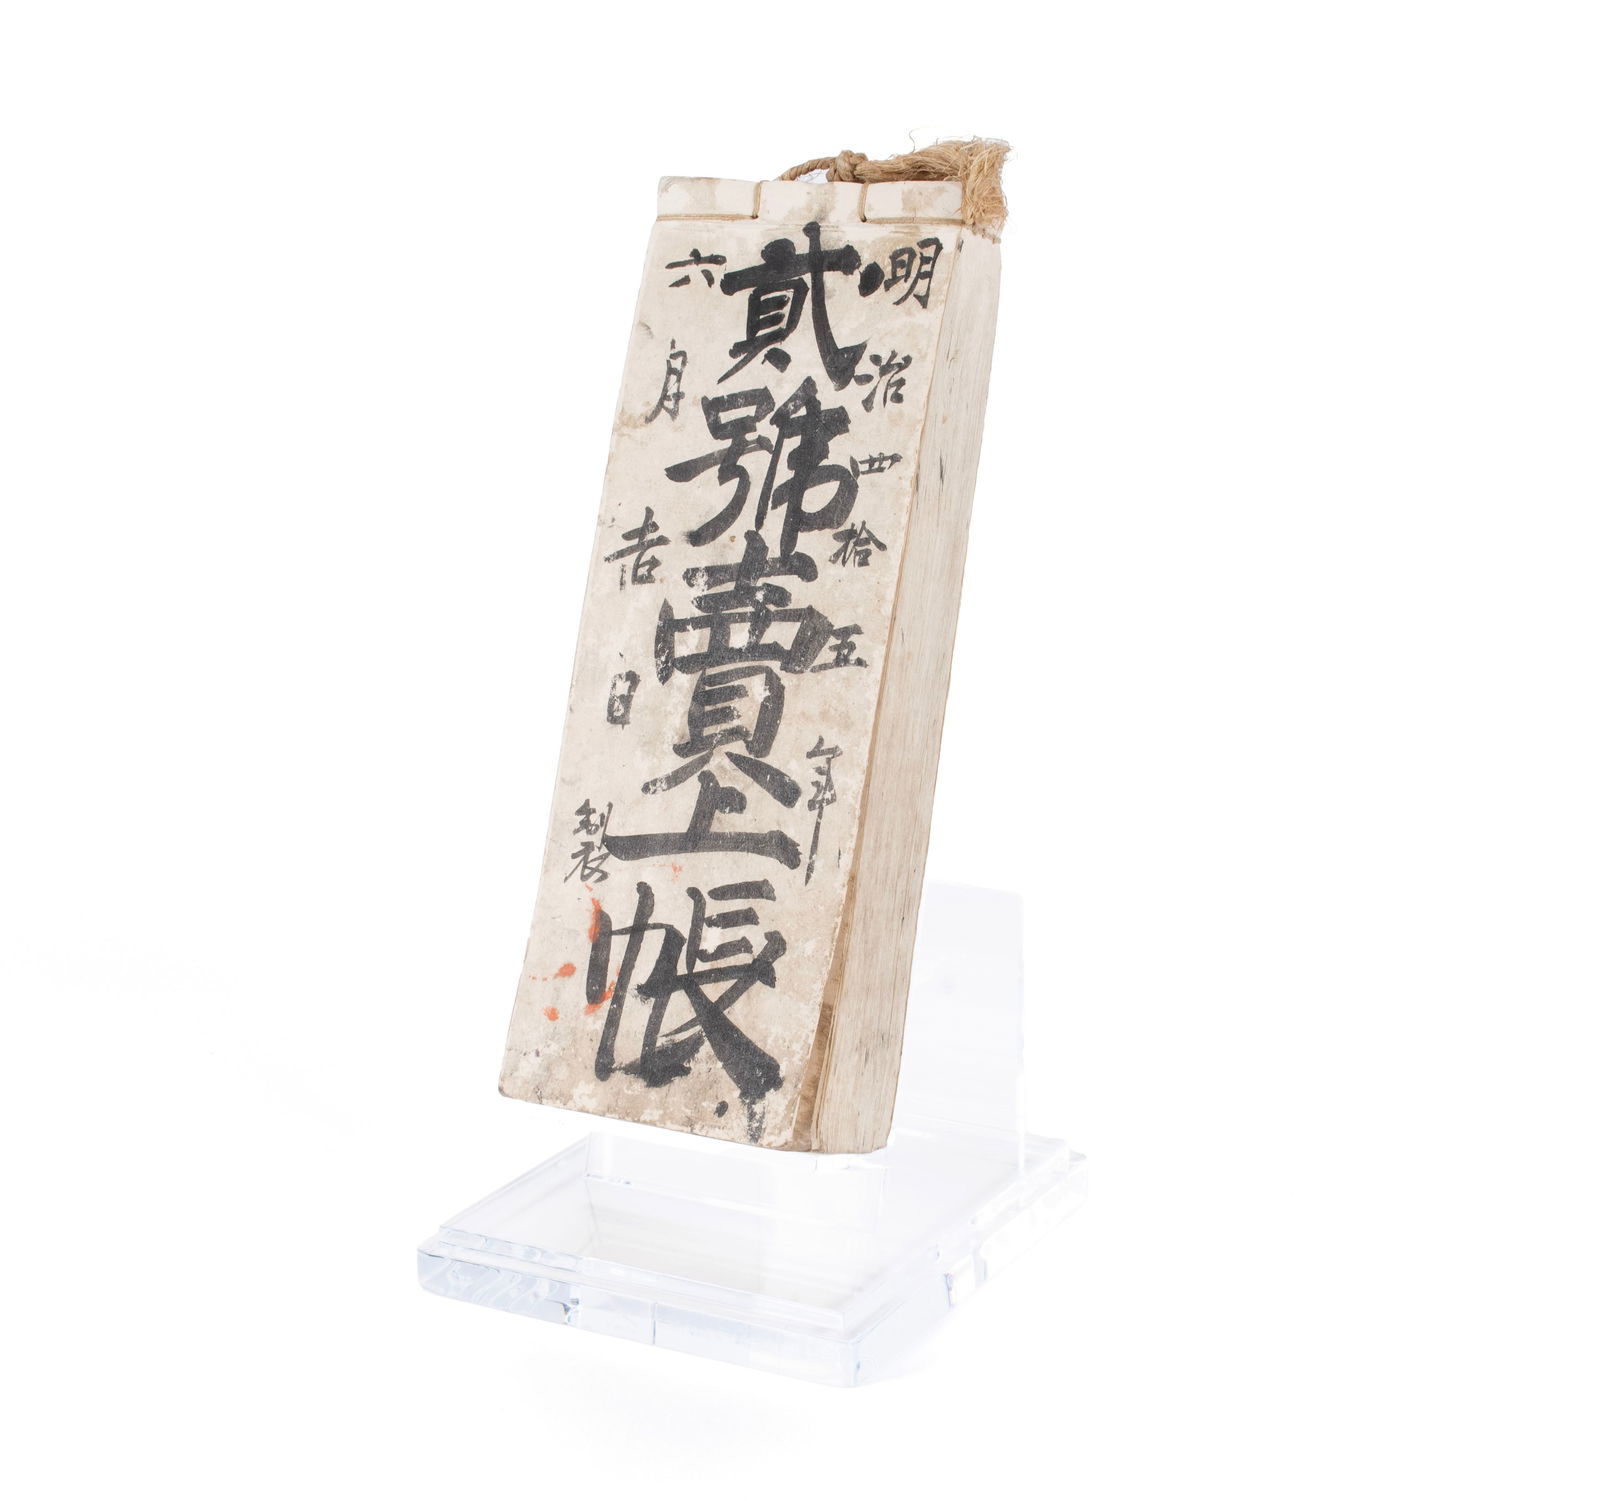 明治四拾五年
貳號賣上帳
六月吉日製